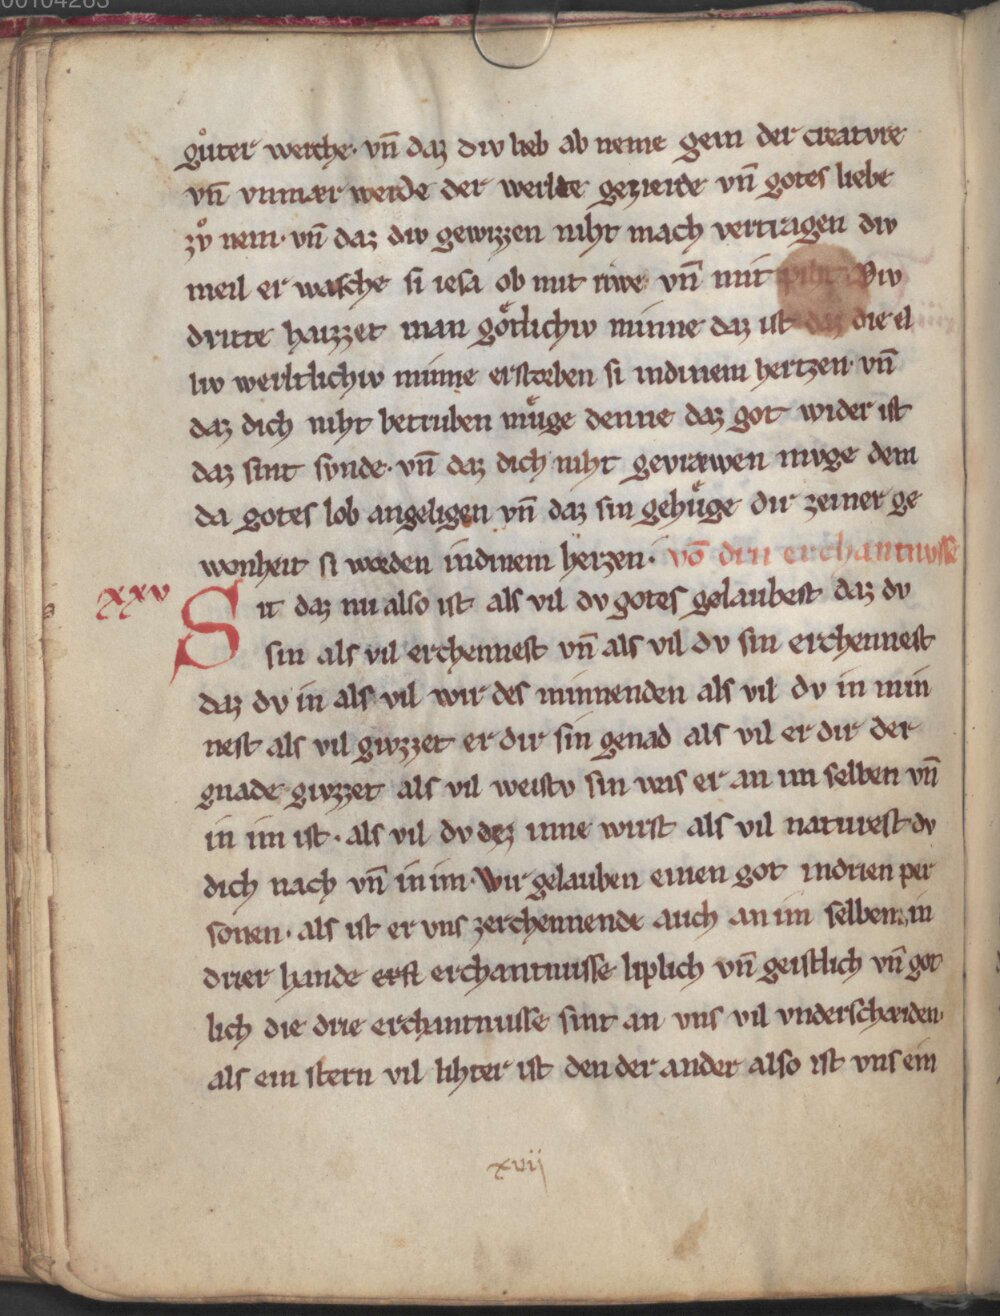 00104283
gůter werche· vn̄ daz div lieb ab neme gein der creatvre
vn̄ vnmær werde der werlte gezierde vn̄ gotes liebe
zů nem· vn̄ daz div gewizzen niht mach vertragen div
meil er wasche si iesa ob mit riwe vn̄ mit piht· Div
dritte haizzet man gőtlichiv minne daz ist daz die el
liv werltlichiv minne ersterben si indinem hertzen· vn̄
daz dich niht betruben műge denne daz got wider ist
daz sint svnde· vn̄ daz dich niht gevræwen mvge dem
da gotes lob angeligen vn̄ daz sin gehűge dir zeiner ge
wonheit si worden indinem herzen· vō drin erchantnvsse
xxv Sit daz nu also ist als vil dv gotes gelaubest daz dv
sin als vil erchennest vn̄ als vil dv sin erchennest
daz dv in als vil wir des minnenden als vil dv in min
nest als vil givzzet er dir sin genad als vil er dir der
gnade givzzet als vil weistv sin weis er an im selben vn̄
in im ist· als vil dv dez inne wirst als vil naturest dv
dich nach vn̄ in im· Wir gelauben einen got indrien per
sonen· als ist er vns zerchennende auch an im selben, in
drier hande erst erchantnusse liplich vn̄ geistlich vn̄ got
lich die drie erchantnusse sint an vns vil vnderschæiden·
als ein stern vil lihter ist den der ander also ist vns ein
xvij